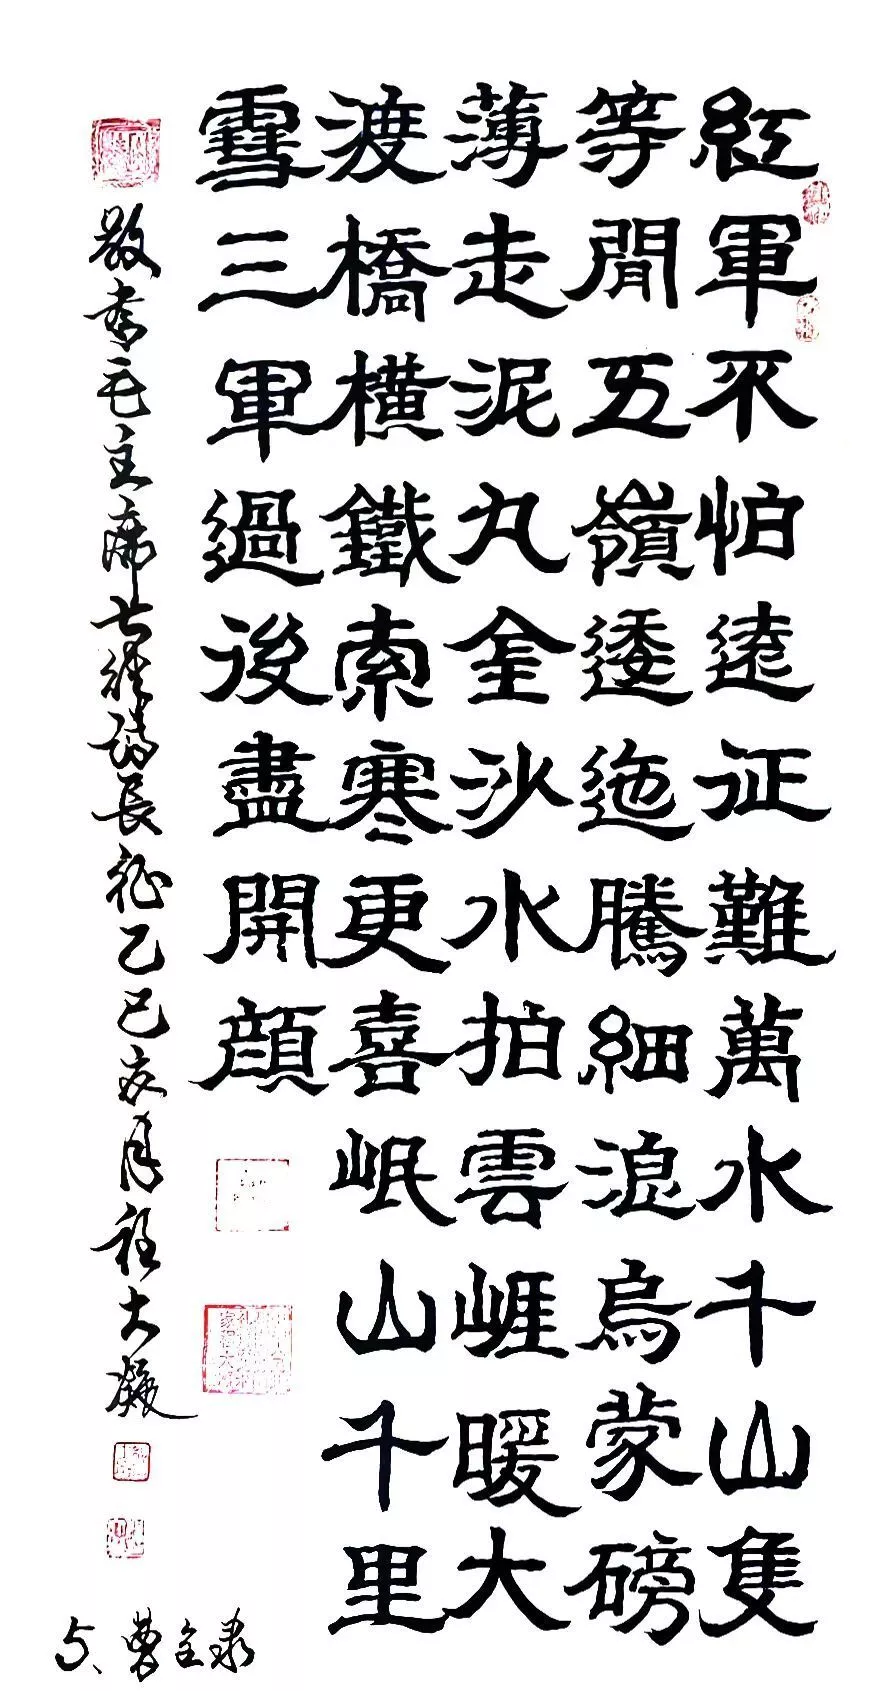 紅軍不怕遠征難萬水千山隻
等閒五嶺逶迤騰細浪烏蒙磅
薄走泥丸金沙水拍雲崕暖大
渡橋橫鐵索寒更喜岷山千里
雪三軍過後盡開顏
敬書毛主席七律詩長征乙巳亥月程大
与、曹全隶